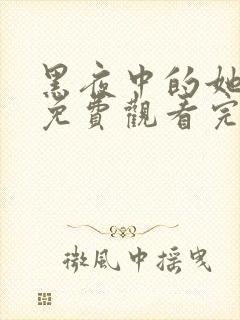 黑夜中的她
免費觀看完
微風中搖曳